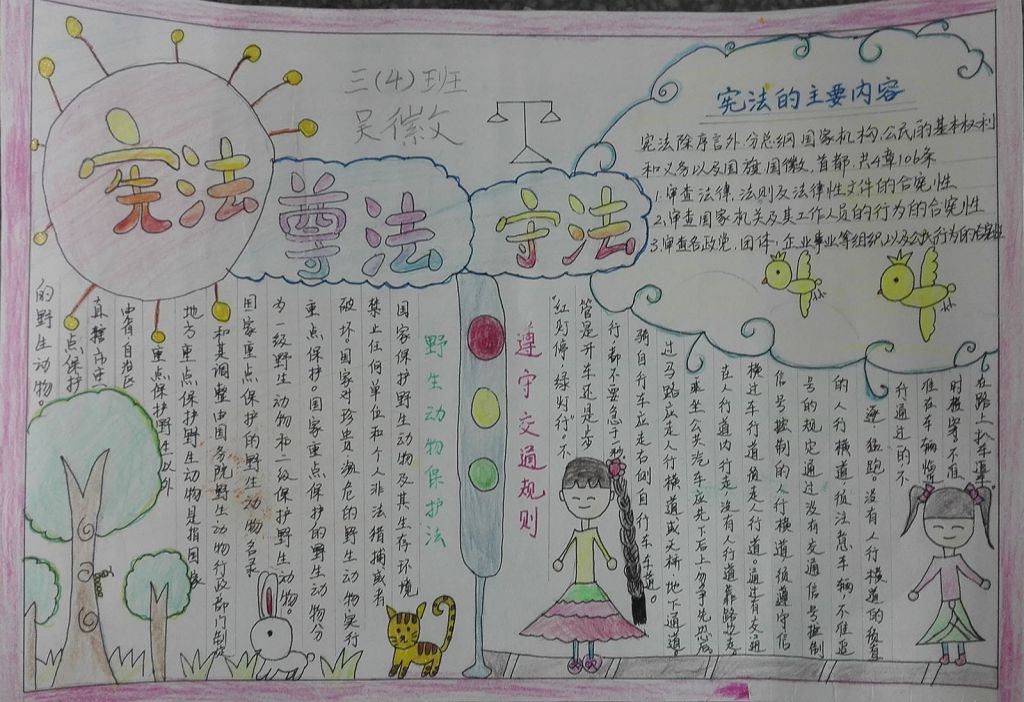 三(4)班
吴徽文
宪法
尊法
守法
宪法的主要内容
宪法除序言外,分总纲,国家机构,公民的基本权利
和义务以及国旗,国徽,首都,共4章106条
1.审查法律,法则及法律性文件的合宪性
2.审查国家机关及其工作人员的行为的合宪性
3.审查各政党,团体,企业事业等组织以及公民行为的合宪性
野生动物保护法
国家保护野生动物及其生存环境
禁止任何单位和个人非法猎捕或者
破坏。国家对珍贵濒危的野生动物实行
重点保护。国家重点保护的野生动物分
为一级野生动物和二级保护野生动物。
国家重点保护的野生动物名录
和其调整由国务院野生动物行政部门制定
地方重点保护野生动物是指国家
重点保护野生以外
由省自治区
直辖市
重点保护
的野生动物。
遵守交通规则
"红灯停,绿灯行"。不
管是开车还是步
行,都不要急于一秒
骑自行车应走右侧自行车车道。
过马路应走人行横道或天桥地下通道。
乘坐公共汽车应先下后上勿争先恐后。
在人行道内行走 没有人行道靠路边走。
横过车行道须走人行道。通过有交通
信号控制的人行横道,须遵守信
号的规定通过没有交通信号控制
的人行横道须注意车辆不准追
逐 猛跑。没有人行横道的须看
行通过的不
准在车辆临近
时横穿不准
在路上扒车